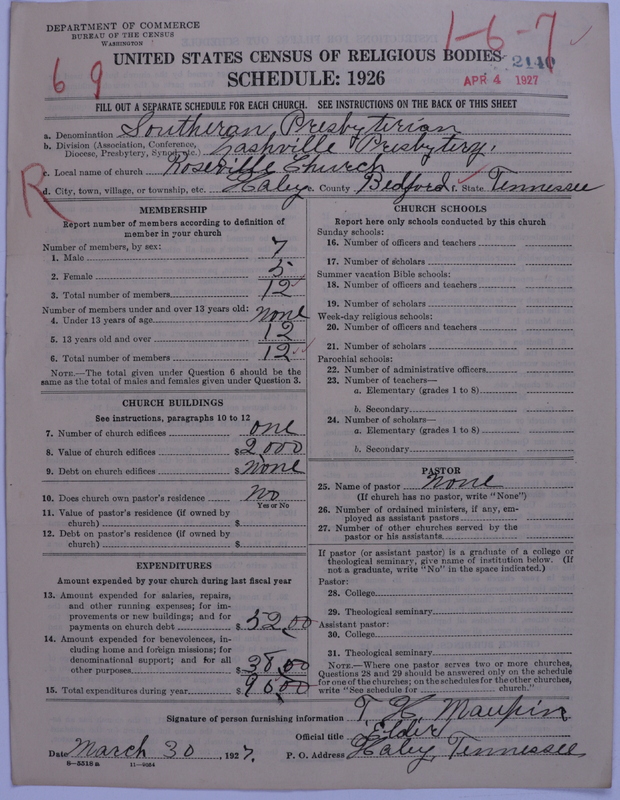 DEPARTMENT OF COMMERCE
BUREAU OF THE CENSUS
WASHINGTON
1-6-7
69
UNITED STATES CENSUS OF RELIGIOUS BODIES
2140
SCHEDULE: 1926
APR 4 1927
FILL OUT A SEPARATE SCHEDULE FOR EACH CHURCH. SEE INSTRUCTIONS ON THE BACK OF THIS SHEET
a. Denomination Southeran Presbyterian
b. Division (Association, Conference, Diocese, Presbytery, Synod, etc.) Nashville Presbytery.
c. Local name of church Roseville Church
d. City, town, village, or township, etc. Haley e. County Bedford f. State Tennessee
R
MEMBERSHIP
Report number of members according to definition of
member in your church
Number of members, by sex:
1. Male 7
2. Female 5
3. Total number of members 12
Number of members under and over 13 years old:
4. Under 13 years of age none
5. 13 years old and over 12
6. Total number of members 12
NOTE.—The total given under Question 6 should be
same as the total of males and females given under Question 3.
CHURCH BUILDINGS
See instructions, paragraphs 10 to 12
7. Number of church edifices one
8. Value of church edifices $2,000
9. Debt on church edifices $None
10. Does church own pastor's residence No
Yes or No
11. Value of pastor's residence (if owned by
church) $
12. Debt on pastor's residence (if owned by
church) $
EXPENDITURES
Amount expended by your church during last fiscal year
13. Amount expended for salaries, repairs,
and other running expenses; for im-
provements or new buildings; and for
payments on church debt $52.00
14. Amount expended for benevolences, in-
cluding home and foreign missions; for
denominational support; and for all
other purposes $38.00
15. Total expenditures during year $90.00
CHURCH SCHOOLS
Report here only schools conducted by this church
Sunday schools:
16. Number of officers and teachers
17. Number of scholars
Summer vacation Bible schools:
18. Number of officers and teachers
19. Number of scholars
Week-day religious schools:
20. Number of officers and teachers
21. Number of scholars
Parochial schools:
22. Number of administrative officers
23. Number of teachers—
a. Elementary (grades 1 to 8)
b. Secondary
24. Number of scholars—
a. Elementary (grades 1 to 8)
b. Secondary
PASTOR
25. Name of pastor None
(If church has no pastor, write "None")
26. Number of ordained ministers, if any, em-
ployed as assistant pastors
27. Number of other churches served by the
pastor or his assistants
If pastor (or assistant pastor) is a graduate of a college or
theological seminary, give name of institution below. (If
not a graduate, write "No" in the space indicated.)
Pastor:
28. College
29. Theological seminary
Assistant pastor:
30. College
31. Theological seminary
NOTE.—Where one pastor serves two or more churches,
Questions 28 and 29 should be answered only on the schedule
for one of the churches; on the schedules for the other churches,
write "See schedule for church."
Signature of person furnishing information T. H. Maupin
Official title Elder
Date March 30, 1927. P. O. Address Haley, Tennessee
8-5518a 11-9054